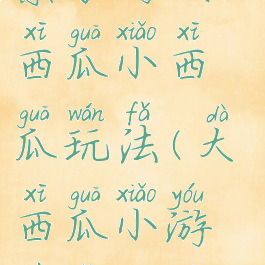 xī guā xiǎo xī
西瓜小西
guā wán fǎ dà
瓜玩法(大
xī guā xiǎo yóu
西瓜小游